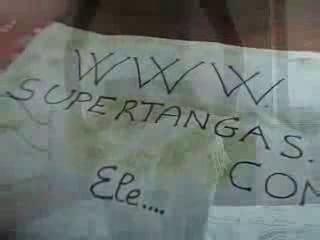 WWW.
SUPERTANGAS.
COM
Ele....